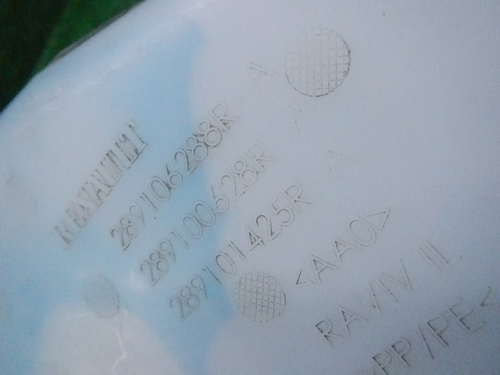 RENAULT
289106288R
289100628R
289101425R
<AA0>
RAVIV IL
>PP/PE<